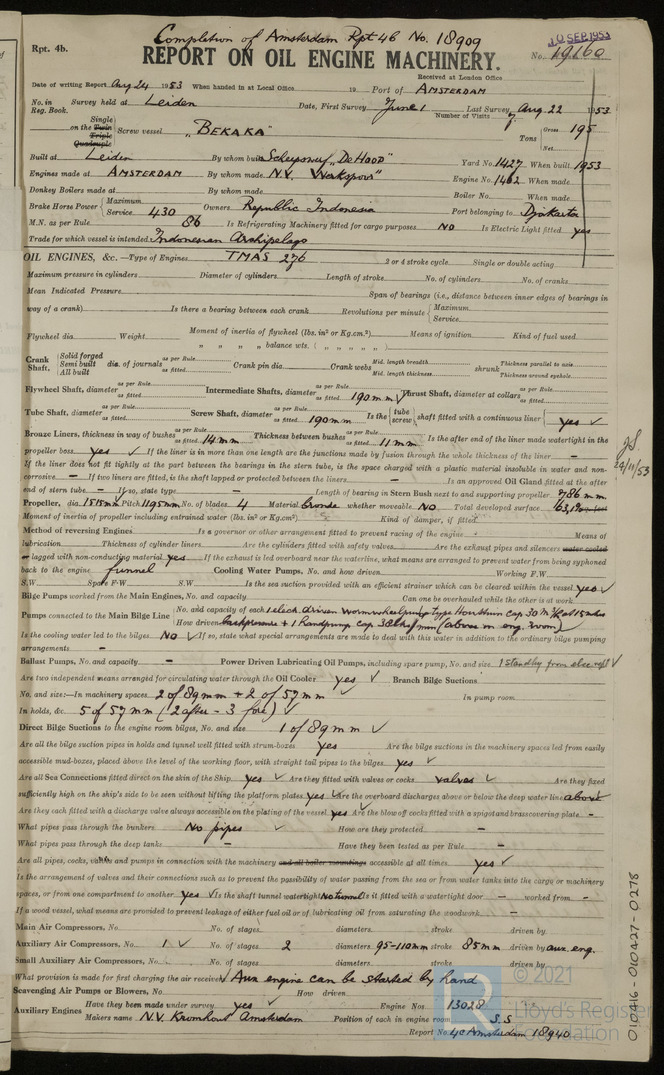 Completion of Amsterdam Rpt 4b No. 18909
Rpt. 4b.
10 SEP 1953
REPORT ON OIL ENGINE MACHINERY.
No. 19160
Received at London Office
Date of writing Report Aug 24 1953 When handed in at Local Office 19 Port of AMSTERDAM
No. in Reg. Book. Survey held at Leiden Date, First Survey June 1 Last Survey Aug 22 1953
Number of Visits 7
on the Single Twin Triple Quadruple Screw vessel "BEKAKA" Tons Gross 195 Net
Built at Leiden By whom built Scheepswerf "De Hoop" Yard No. 1427 When built 1953
Engines made at AMSTERDAM By whom made N.V. "Werkspoor" Engine No. 1462 When made
Donkey Boilers made at By whom made Boiler No. When made
Brake Horse Power Maximum Service 430 Owners Republic Indonesia Port belonging to Djakarta
M.N. as per Rule 86 Is Refrigerating Machinery fitted for cargo purposes NO Is Electric Light fitted yes
Trade for which vessel is intended Indonesian Archipelago
OIL ENGINES, &c.—Type of Engines TMAS 276 2 or 4 stroke cycle Single or double acting
Maximum pressure in cylinders Diameter of cylinders Length of stroke No. of cylinders No. of cranks
Mean Indicated Pressure Span of bearings (i.e., distance between inner edges of bearings in
way of a crank) Is there a bearing between each crank Revolutions per minute Maximum Service
Flywheel dia. Weight Moment of inertia of flywheel (lbs. in² or Kg.cm.²) Means of ignition Kind of fuel used
" " " balance wts. ( " " " " )
Crank Shaft, Solid forged Semi built All built dia. of journals as per Rule as fitted Crank pin dia. Crank webs Mid. length breadth Mid. length thickness shrunk Thickness parallel to axis Thickness around eyehole
Flywheel Shaft, diameter as per Rule as fitted Intermediate Shafts, diameter as per Rule as fitted 190 mm Thrust Shaft, diameter at collars as per Rule as fitted
Tube Shaft, diameter as per Rule as fitted Screw Shaft, diameter as per Rule as fitted 190 mm Is the tube screw shaft fitted with a continuous liner yes ✓
Bronze Liners, thickness in way of bushes as per Rule as fitted 14 mm Thickness between bushes as per Rule as fitted 11 mm Is the after end of the liner made watertight in the
propeller boss yes ✓ If the liner is in more than one length are the junctions made by fusion through the whole thickness of the liner –
If the liner does not fit tightly at the part between the bearings in the stern tube, is the space charged with a plastic material insoluble in water and non-
corrosive – If two liners are fitted, is the shaft lapped or protected between the liners – Is an approved Oil Gland fitted at the after
end of stern tube – If so, state type – Length of bearing in Stern Bush next to and supporting propeller 786 mm
Propeller, dia. 1515mm Pitch 1195mm No. of blades 4 Material bronze whether moveable NO Total developed surface 63,1%
Moment of inertia of propeller including entrained water (lbs. in² or Kg.cm.²) Kind of damper, if fitted
Method of reversing Engines Is a governor or other arrangement fitted to prevent racing of the engine Means of
lubrication Thickness of cylinder liners Are the cylinders fitted with safety valves Are the exhaust pipes and silencers water cooled
or lagged with non-conducting material yes If the exhaust is led overboard near the waterline, what means are arranged to prevent water from being syphoned
back to the engine funnel Cooling Water Pumps, No. and how driven Working F.W.
S.W. Spare F.W. S.W. Is the sea suction provided with an efficient strainer which can be cleared within the vessel yes ✓
Bilge Pumps worked from the Main Engines, No. and capacity Can one be overhauled while the other is at work
Pumps connected to the Main Bilge Line No. and capacity of each 1 elect. driven wormwheelpump
How driven + 1 handpump (above in eng. room)
Is the cooling water led to the bilges NO ✓ If so, state what special arrangements are made to deal with this water in addition to the ordinary bilge pumping
arrangements –
Ballast Pumps, No. and capacity – Power Driven Lubricating Oil Pumps, including spare pump, No. and size 1 Standby
Are two independent means arranged for circulating water through the Oil Cooler yes ✓ Branch Bilge Suctions
No. and size:—In machinery spaces 2 of 89 mm + 2 of 57 mm In pump room
In holds, &c. 5 of 57 mm (2 after - 3 fore) ✓
Direct Bilge Suctions to the engine room bilges, No. and size 1 of 89 mm ✓
Are all the bilge suction pipes in holds and tunnel well fitted with strum-boxes yes Are the bilge suctions in the machinery spaces led from easily
accessible mud-boxes, placed above the level of the working floor, with straight tail pipes to the bilges yes ✓
Are all Sea Connections fitted direct on the skin of the Ship yes ✓ Are they fitted with valves or cocks valves ✓ Are they fixed
sufficiently high on the ship's side to be seen without lifting the platform plates yes ✓ Are the overboard discharges above or below the deep water line above
Are they each fitted with a discharge valve always accessible on the plating of the vessel yes Are the blow off cocks fitted with a spigot and brass covering plate –
What pipes pass through the bunkers No pipes ✓ How are they protected –
What pipes pass through the deep tanks – Have they been tested as per Rule –
Are all pipes, cocks, valves and pumps in connection with the machinery and all boiler mountings accessible at all times yes ✓
Is the arrangement of valves and their connections such as to prevent the possibility of water passing from the sea or from water tanks into the cargo or machinery
spaces, or from one compartment to another yes ✓ Is the shaft tunnel watertight No tunnel Is it fitted with a watertight door – worked from –
If a wood vessel, what means are provided to prevent leakage of either fuel oil or of lubricating oil from saturating the woodwork –
Main Air Compressors, No. No. of stages diameters stroke driven by
Auxiliary Air Compressors, No. 1 ✓ No. of stages 2 diameters 95-110mm stroke 85mm driven by aux. eng.
Small Auxiliary Air Compressors, No. No. of stages diameters stroke driven by
What provision is made for first charging the air receivers Aux engine can be started by hand
Scavenging Air Pumps or Blowers, No. How driven
Auxiliary Engines Have they been made under survey yes ✓ Engine Nos 13028
Makers name N.V. Kromhout Amsterdam Position of each in engine room S.S
Report No. 4c Amsterdam 18940
29/11/53
010416-010427-0278
© 2021
Lloyd's Register
Foundation